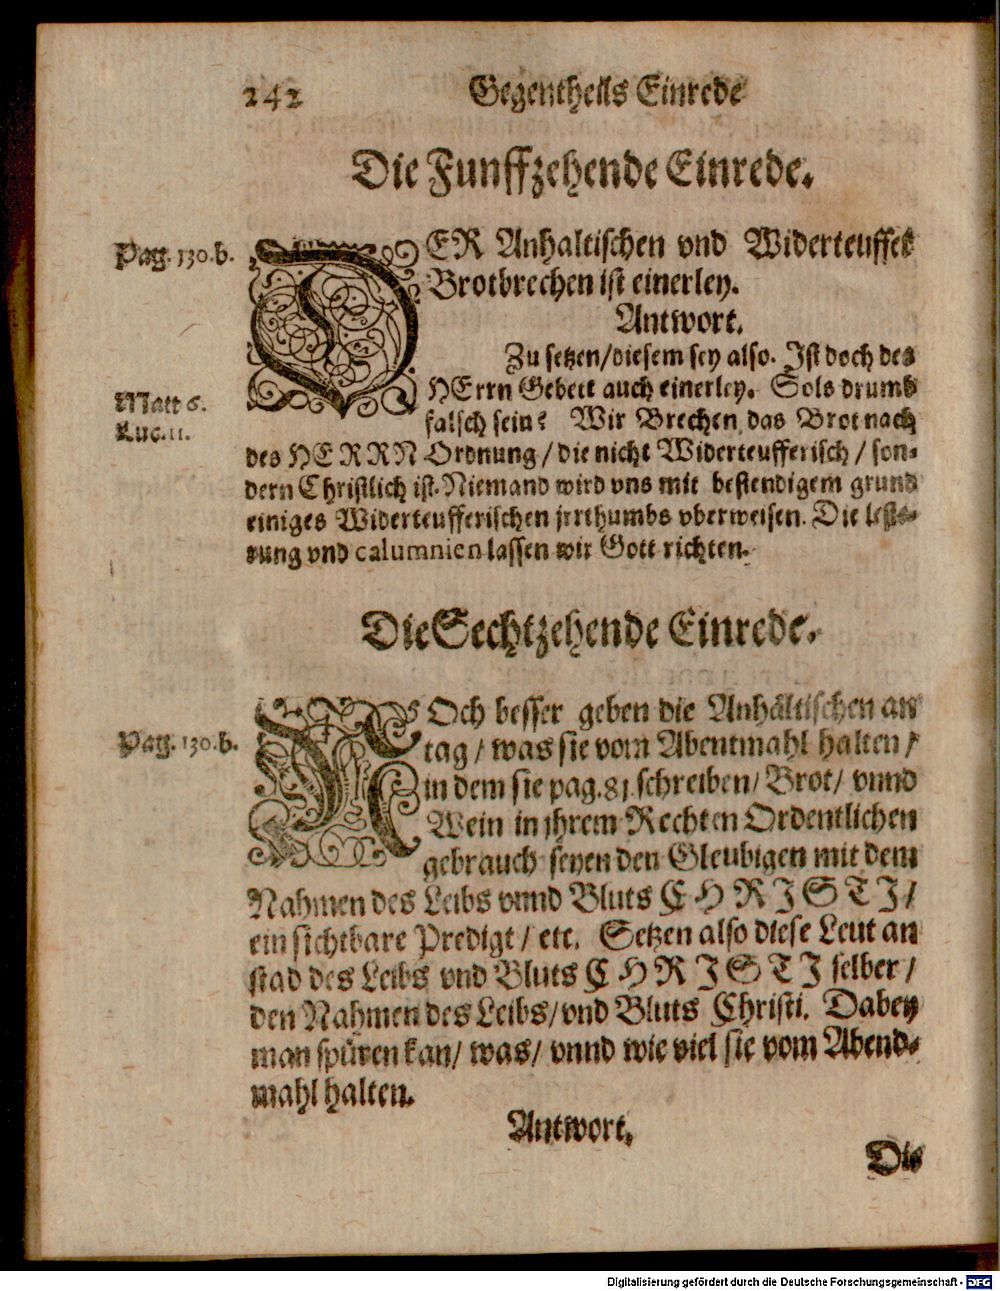 242 Gegentheils Einrede
Die Funffzehende Einrede.
Pag. 130. b.
DER Anhaltischen vnd Widerteuffer
Brotbrechen ist einerley.
Antwort.
Zu setzen/diesem sey also. Ist doch des
HErrn Gebett auch einerley. Sols drumb
Matt 6.
falsch sein? Wir Brechen das Brot nach
Luc. 11.
des HERRN Ordnung / die nicht Widerteufferisch / son-
dern Christlich ist. Niemand wird vns mit bestendigem grund
einiges Widerteufferischen jrrthumbs vberweisen. Die leste-
rung vnd calumnien lassen wir Gott richten.
Die Sechtzehende Einrede.
NOch besser geben die Anhältischen an
Pag. 130. b.
tag / was sie vom Abentmahl halten /
in dem sie pag. 81. schreiben / Brot / vnnd
Wein in jhrem Rechten Ordentlichen
gebrauch seyen den Gleubigen mit dem
Nahmen des Leibs vnnd Bluts CHRISTI /
ein sichtbare Predigt / ett. Setzen also diese Leut an
stad des Leibs vnd Bluts CHRISTI selber /
den Nahmen des Leibs / vnd Bluts Christi. Dabey
man spüren kan / was / vnnd wie viel sie vom Abend-
mahl halten.
Antwort.
Die
Digitalisierung gefördert durch die Deutsche Forschungsgemeinschaft - DFG